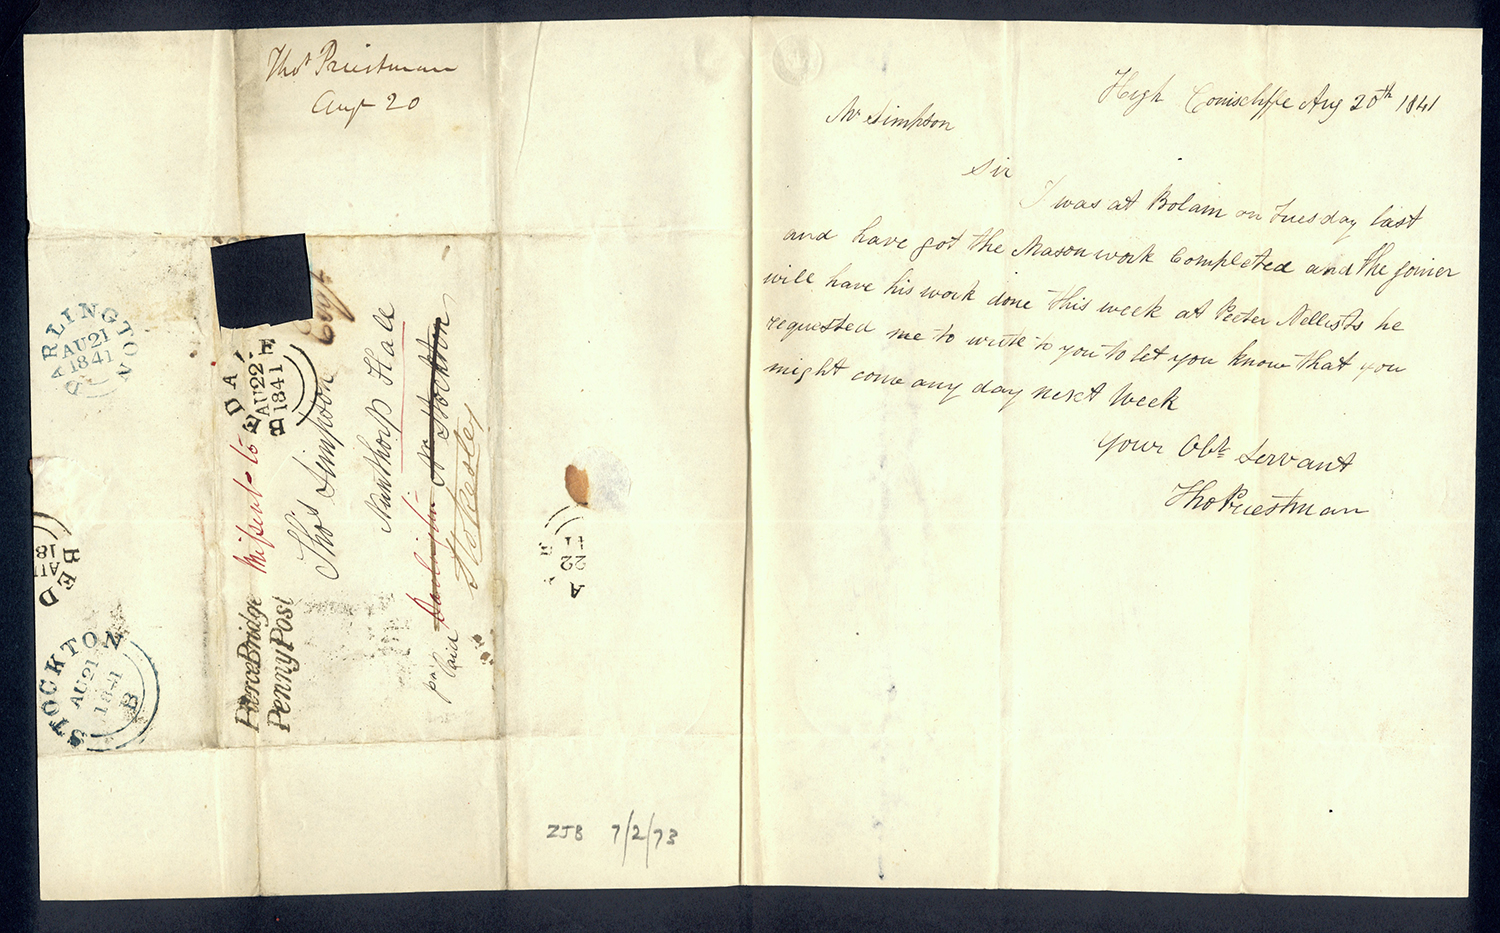 Thos Priestman
Augt 20
DARLINGTON
AU21
1841
BEDALE
AU22
1841
Missent to
Thos Simpson
Nunthorp Hall
Nr Stockton
Darlington
Stokesley
pd
Pierce Bridge
Penny Post
BED
AU
18
STOCKTON
AU21
1841
B
A
22
41
ZJB 7/2/73
High Coniscliffe Aug 20th 1841
Mr Simpson
Sir
I was at Bolam on Tuesday last
and have got the Mason work Completed and the Joiner
will have his work done this week at Peeter Nellists he
requested me to write to you to let you know that you
might come any day next Week
Your Obt Servant
Tho Priestman